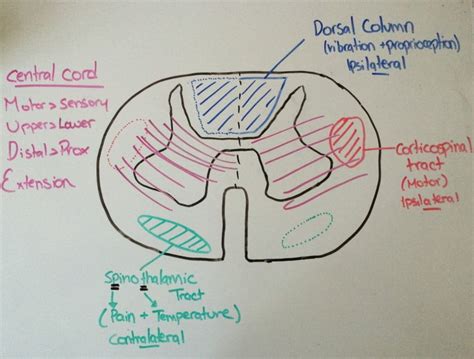 Dorsal Column
(vibration + proprioception)
Ipsilateral
Central Cord
Motor > sensory
Upper > Lower
Distal > Prox
Extension
Corticospinal
tract
(Motor)
Ipsilateral
Spinothalamic
Tract
(Pain + Temperature)
Contralateral